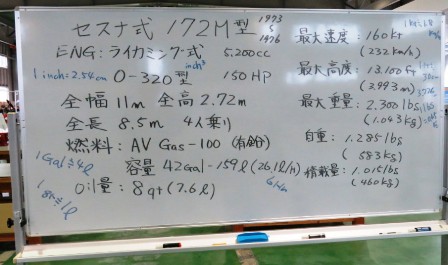 セスナ式 172M型 1973 ～ 1976
ENG:ライカミング式 5.200cc
1inch=2.54cm O-320型 150HP
inch³
全幅 11m 全高 2.72m
全長 8.5m 4人乗り
燃料: AV Gas-100 (有鉛)
1Gal≒4ℓ 容量 42Gal-159ℓ (26.1ℓ/H)
1qt≒1ℓ Oil量: 8qt (7.6ℓ)
最大速度: 160kt
(232km/h)
最大高度: 13.100ft
(3.993m)
最大重量: 2.300lbs
(1.043kg)
自重: 1.285lbs
(583kg)
積載量: 1.015lbs
(460kg)